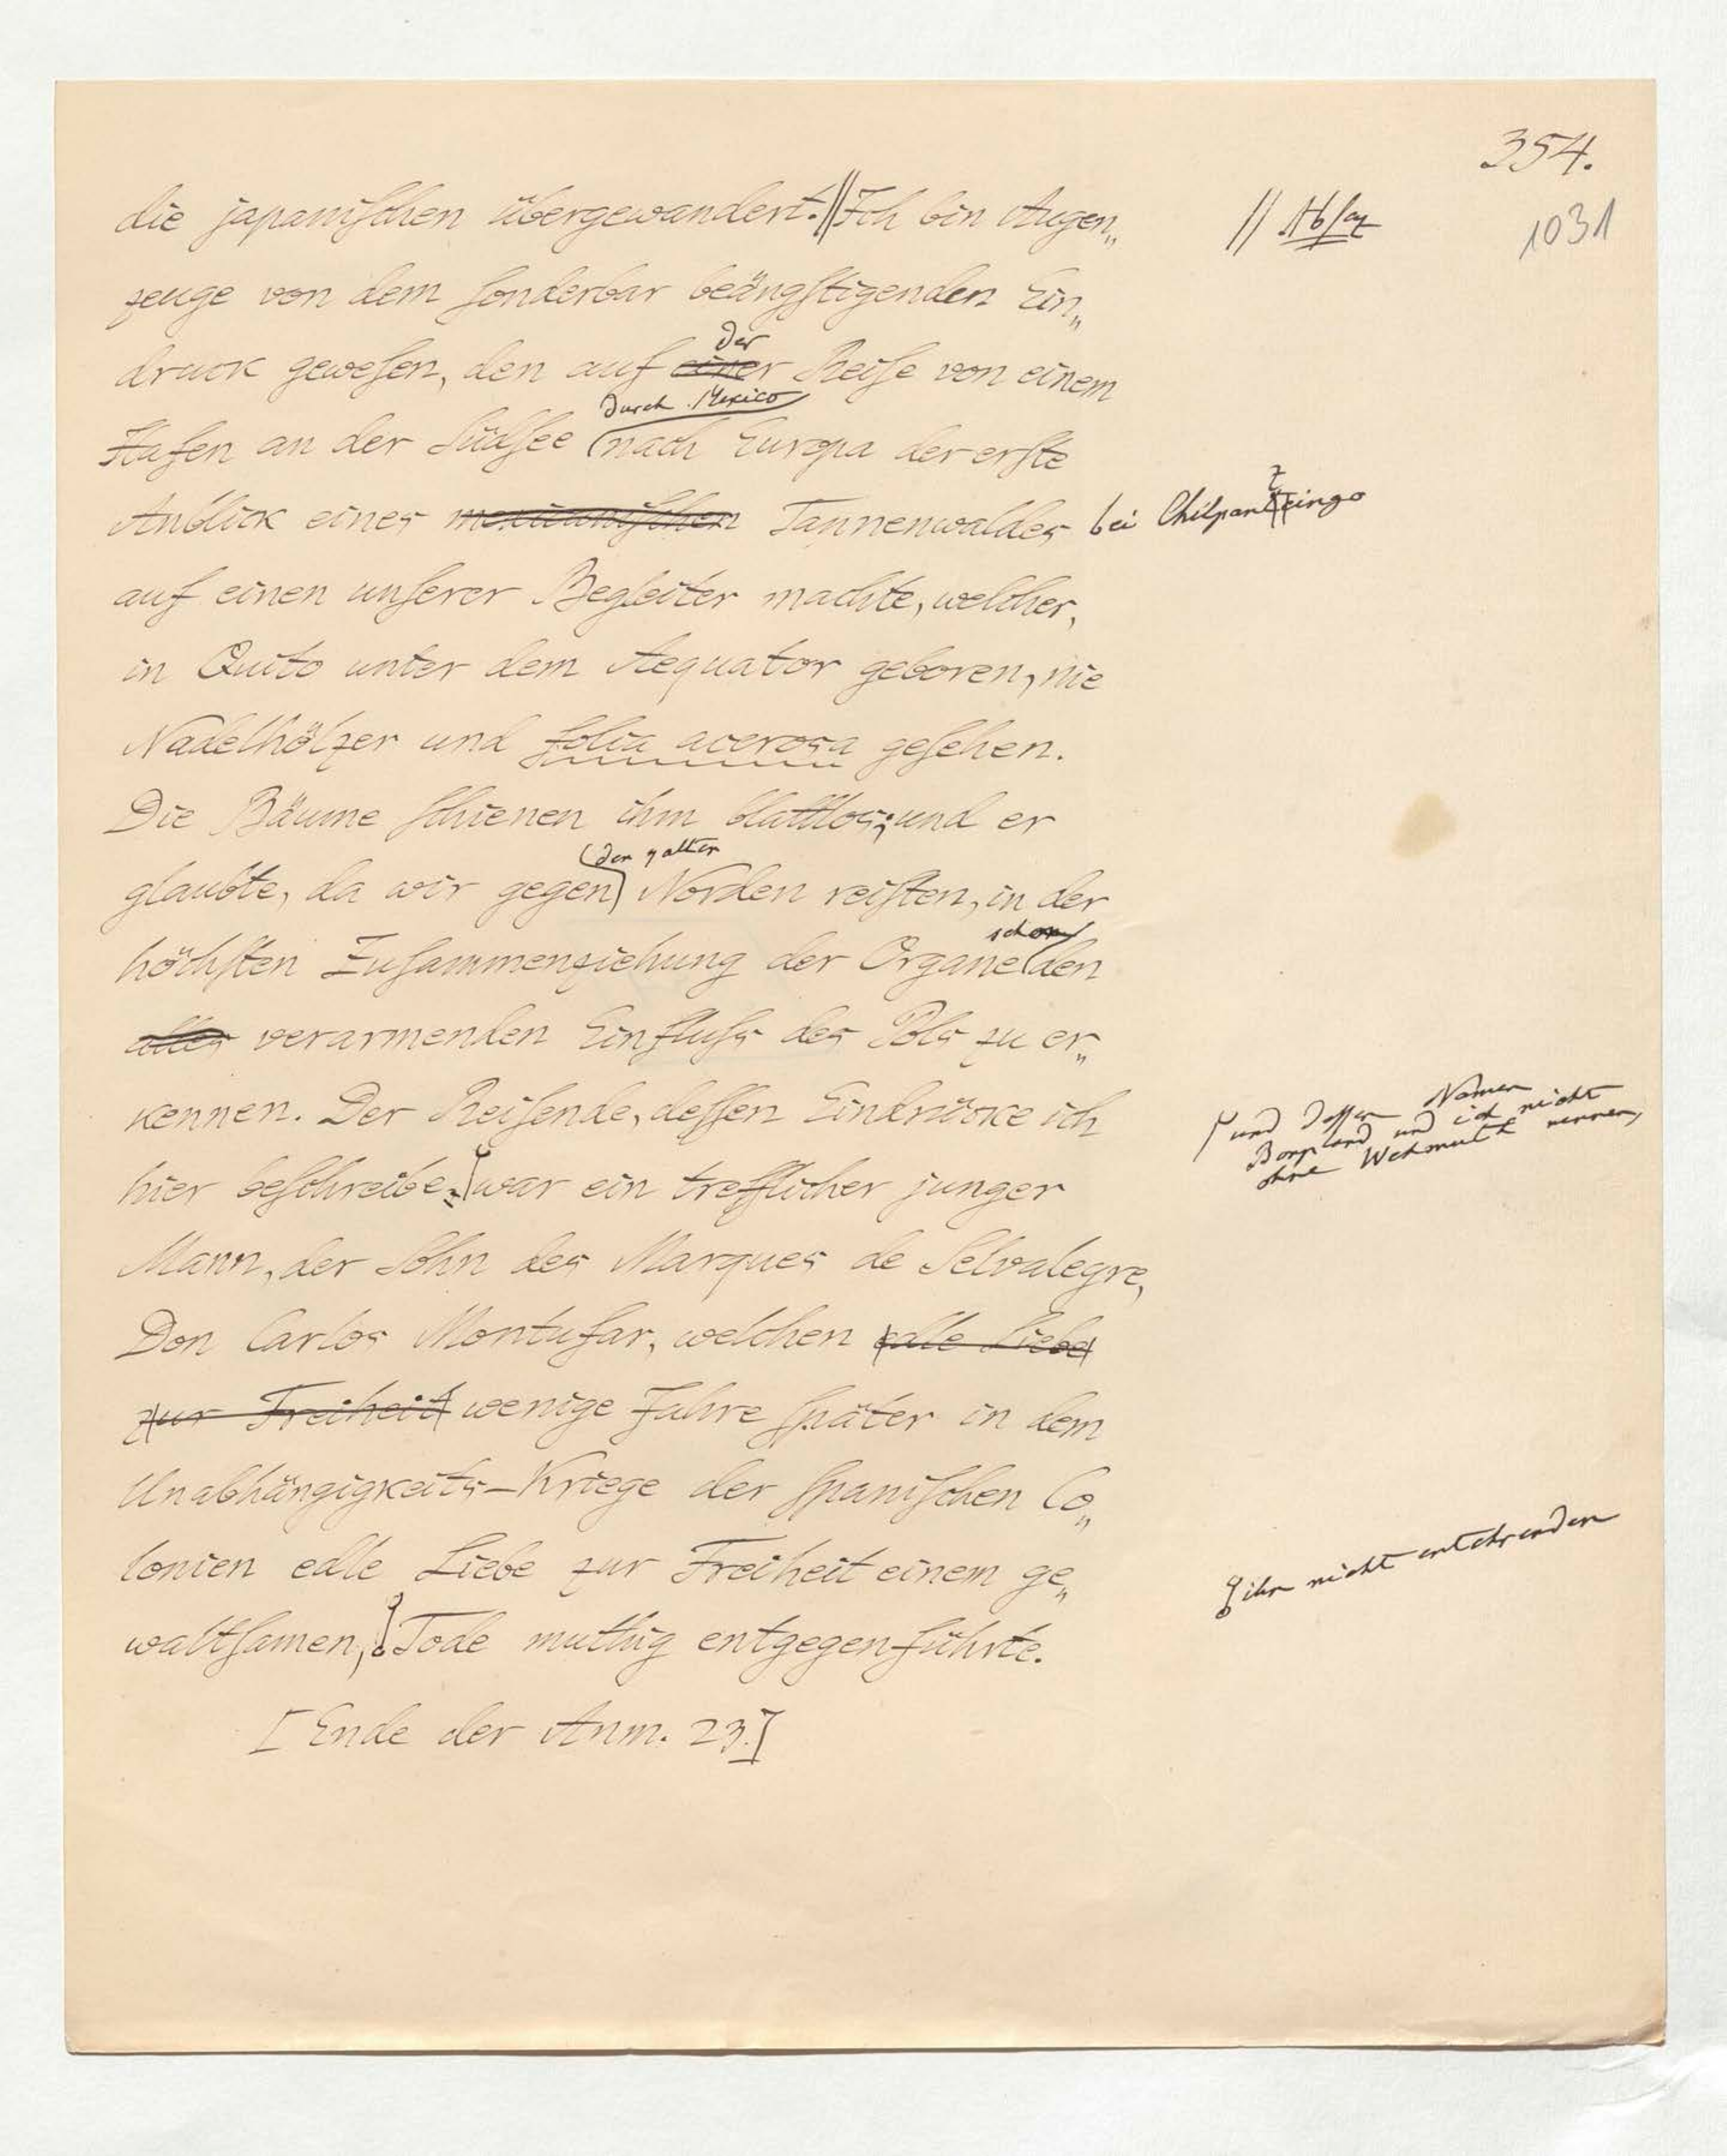 354.
1031
die japanischen übergewandert.//Ich bin Augen„
// Absaz
zeuge von dem sonderbar beängstigenden Ein„
der
druck gewesen, den auf einer Reise von einem
durch Mexico
Hafen an der Südsee nach Europa der erste
z
Anblick eines mexicanischen Tannenwaldes bei Chilpantzingo
auf einen unserer Begleiter machte, welcher,
in Quito unter dem Aequator geboren, nie
Nadelhölzer und folia acerosa gesehen.
Die Bäume schienen ihm blattlos; und er
glaubte, da wir gegen Norden reisten, in der
schon
höchsten Zusammenziehung der Organe den
alles verarmenden Einfluss des Pols zu er„
kennen. Der Reisende, dessen Eindrücke ich
und dessen Namen
Bonpland und ich nicht
ohne Wehmuth nennen,
hier beschreibe, war ein trefflicher junger
Mann, der Sohn des Marques de Selvalegre,
Don Carlos Montufar, welchen edle Liebe
zur Freiheit wenige Jahre später in dem
Unabhängigkeits-Kriege der spanischen Co„
lonien edle Liebe zur Freiheit einem ge„
ihn nicht entehrenden
waltsamen, Tode muthig entgegenführte.
[Ende der Anm. 23.]